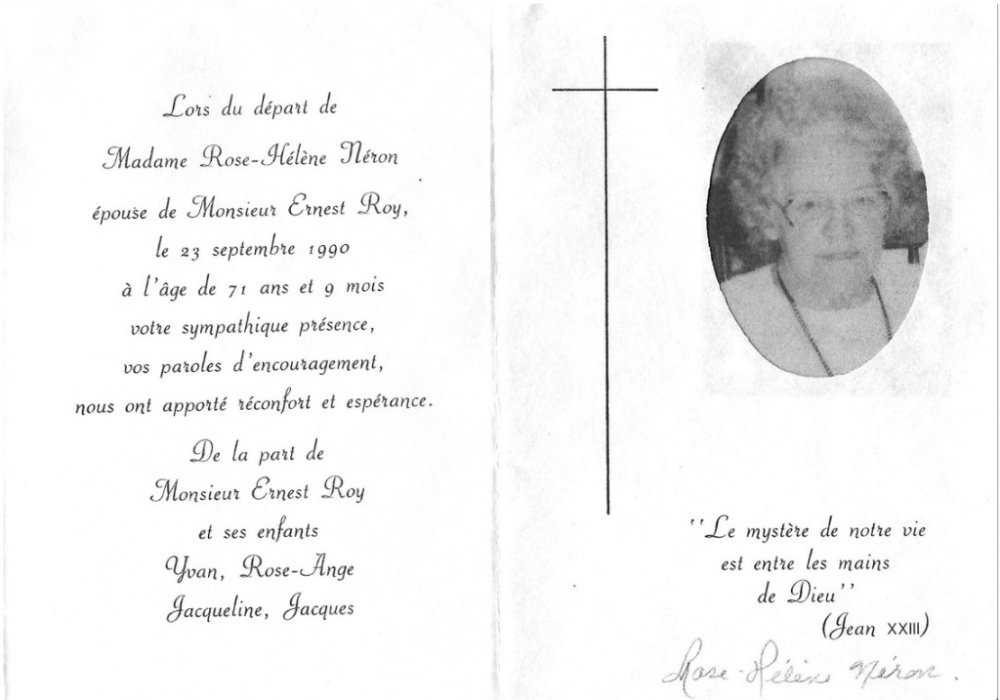 Lors du départ de
Madame Rose-Hélène Néron
épouse de Monsieur Ernest Roy,
le 23 septembre 1990
à l'âge de 71 ans et 9 mois
votre sympathique présence,
vos paroles d'encouragement,
nous ont apporté réconfort et espérance.
De la part de
Monsieur Ernest Roy
et ses enfants
Yvan, Rose-Ange
Jacqueline, Jacques
''Le mystère de notre vie
est entre les mains
de Dieu''
(Jean XXIII)
Rose-Hélène Néron.